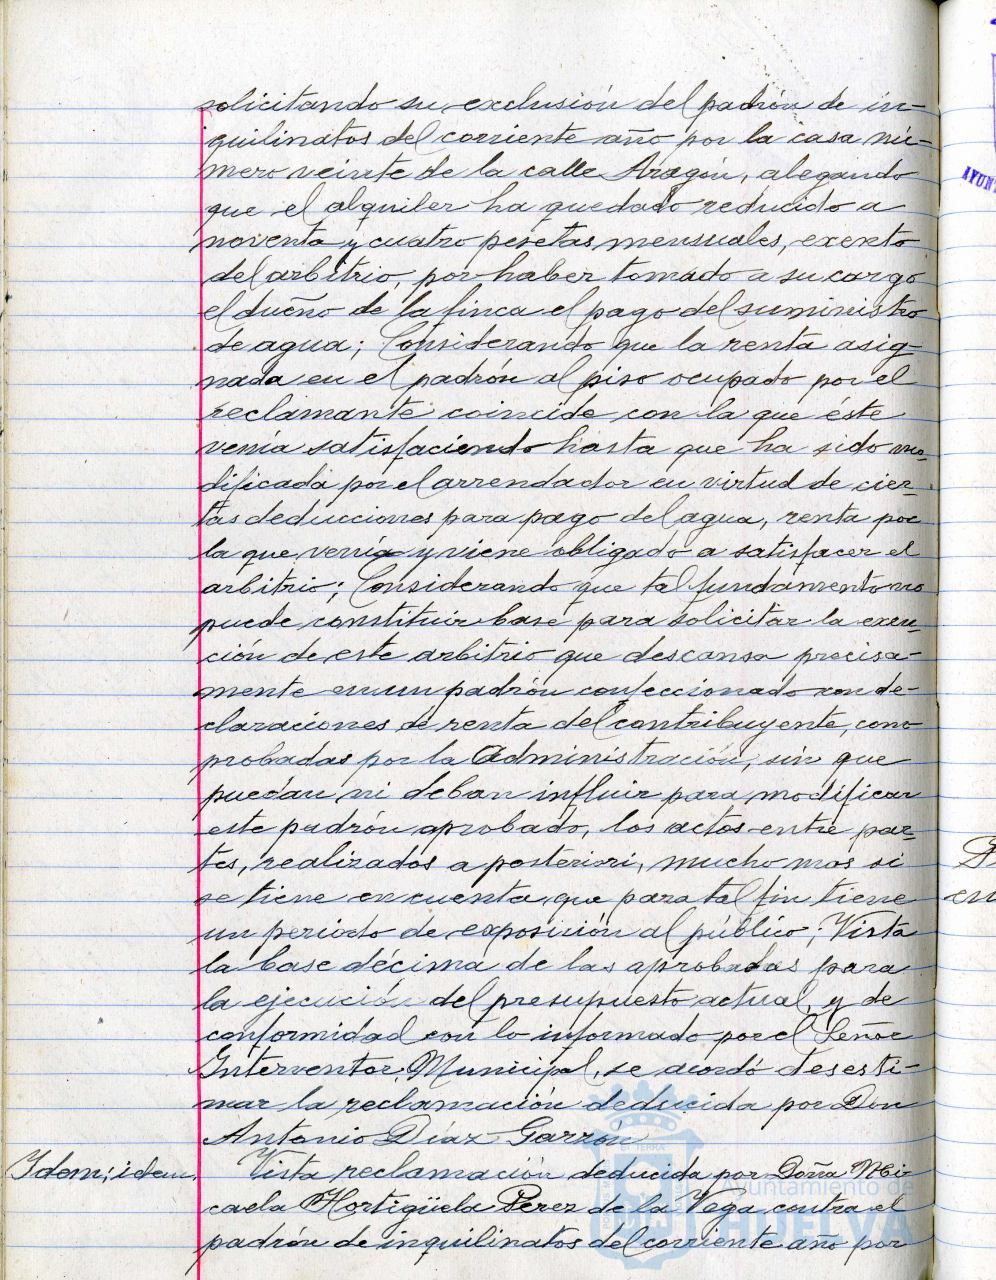 solicitando su exclusión del padrón de in-
quilinatos del corriente año por la casa nú-
mero veinte de la calle Aragón, alegando
que el alquiler ha quedado reducido a
noventa y cuatro pesetas mensuales, exento
del arbitrio, por haber tomado a su cargo
el dueño de la finca el pago del suministro
de agua; Considerando que la renta asig-
nada en el padrón al piso ocupado por el
reclamante coincide con la que éste
venía satisfaciendo hasta que ha sido mo-
dificada por el arrendador en virtud de cier-
tas deducciones para pago del agua, renta por
la que venía y viene obligado a satisfacer el
arbitrio; Considerando que tal fundamento no
puede constituir base para solicitar la exen-
ción de este arbitrio que descansa precisa-
mente en un padrón confeccionado con de-
claraciones de renta del contribuyente, com-
probadas por la Administración, sin que
puedan ni deban influir para modificar
este padrón aprobado, los actos entre par-
tes, realizados a posteriori, mucho mas si
se tiene en cuenta que para tal fin tiene
un periodo de exposición al público; Vista
la base décima de las aprobadas para
la ejecución del presupuesto actual, y de
conformidad con lo informado por el Señor
Interventor Municipal, se acordó desesti-
mar la reclamación deducida por Don
Antonio Díaz Garzón.
Idem; idem. Vista reclamación deducida por Doña Mi-
caela Hortigüela Pérez de la Vega contra el
padrón de inquilinatos del corriente año por
Ayuntamiento de
HUELVA
AYUN
en